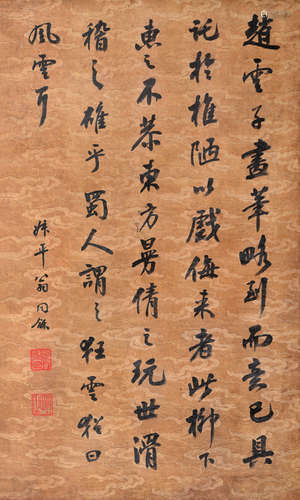 趙雲子畫筆略到而意已具
託於椎陋以戲侮來者此柳下
惠之不恭東方曼倩之玩世滑
稽之雄乎蜀人謂之狂雲猶曰
風雲耳
叔平翁同龢